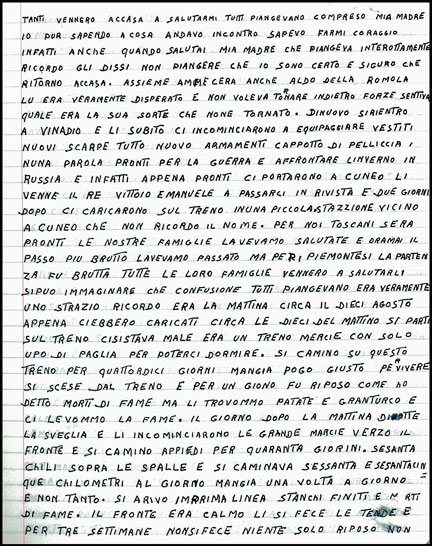 TANTI VENNERO ACCASA A SALUTARMI TUTTI PIANGEVANO COMPRESO MIA MADRE
IO PUR SAPENDO A COSA ANDAVO INCONTRO SAPEVO FARMI CORAGGIO
INFATTI ANCHE QUANDO SALUTAI MIA MADRE CHE PIANGEVA INTEROTTAMENTE
RICORDO GLI DISSI NON PIANGERE CHE IO SONO CERTO E SIGURO CHE
RITORNO ACCASA. ASSIEME AMRE CERA ANCHE ALDO DELLA ROMOLA
LU ERA VERAMENTE DISPERATO E NON VOLEVA TORNARE INDIETRO FORZE SENTIVA
QUALE ERA LA SUA SORTE CHE NONE TORNATO. DINUOVO SIRIENTRO
A VINADIO E LI SUBITO CI INCOMINCIARONO A EQUIPAGGIARE VESTITI
NUOVI SCARPE TUTTO NUOVO ARMAMENTI CAPPOTTO DI PELLICCIA,
INUNA PAROLA PRONTI PER LA GUERRA E AFFRONTARE LINVERNO IN
RUSSIA E INFATTI APPENA PRONTI CI PORTARONO A CUNEO LI
VENNE IL RE VITTOIO EMANUELE A PASSARCI IN RIVISTA E DUE GIORNI
DOPO CI CARICARONO SUL TRENO INUNA PICCOLA STAZZIONE VICINO
A CUNEO CHE NON RICORDO IL NOME. PER NOI TOSCANI SERA
PRONTI LE NOSTRE FAMIGLIE LAVEVAMO SALUTATE E ORAMAI IL
PASSO PIU BRUTTO LAVEVAMO PASSATO MA PER I PIEMONTESI LA PARTEN
ZA FU BRUTTA TUTTE LE LORO FAMIGLIE VENNERO A SALUTARLI
SIPUO IMMAGINARE CHE CONFUSIONE TUTTI PIANGEVANO ERA VERAMENTE
UNO STRAZIO RICORDO ERA LA MATTINA CIRCA IL DIECI AGOSTO
APPENA CIEBBERO CARICATI CIRCA LE DIECI DEL MATTINO SI PARTI
SUL TRENO CISISTAVA MALE ERA UN TRENO MERCIE CON SOLO
UPO DI PAGLIA PER POTERCI DORMIRE. SI CAMINO SU QUESTO
TRENO PER QUATTORDICI GIORNI MANGIA POGO GIUSTO PER VIVERE
SI SCESE DAL TRENO E PER UN GIONO FU RIPOSO COME HO
DETTO MORTI DI FAME MA LI TROVOMMO PATATE E GRANTURCO E
CI LEVOMMO LA FAME. IL GIORNO DOPO LA MATTINA DINOTTE
LA SVEGLIA E LI INCOMINCIARONO LE GRANDE MARCIE VERZO IL
FRONTE E SI CAMINO APPIEDI PER QUARANTA GIORINI. SESANTA
CHILI SOPRA LE SPALLE E SI CAMINAVA SESSANTA E SESANTACIN
QUE CHILOMETRI AL GIORNO MANGIA UNA VOLTA A GIORNO
E NON TANTO. SI ARIVO IMPRIMA LINEA STANCHI FINITI E MORTI
DI FAME. IL FRONTE ERA CALMO LI SI FECE LE TENDE E
PER TRE SETTIMANE NONSIFECE NIENTE SOLO RIPOSO NON